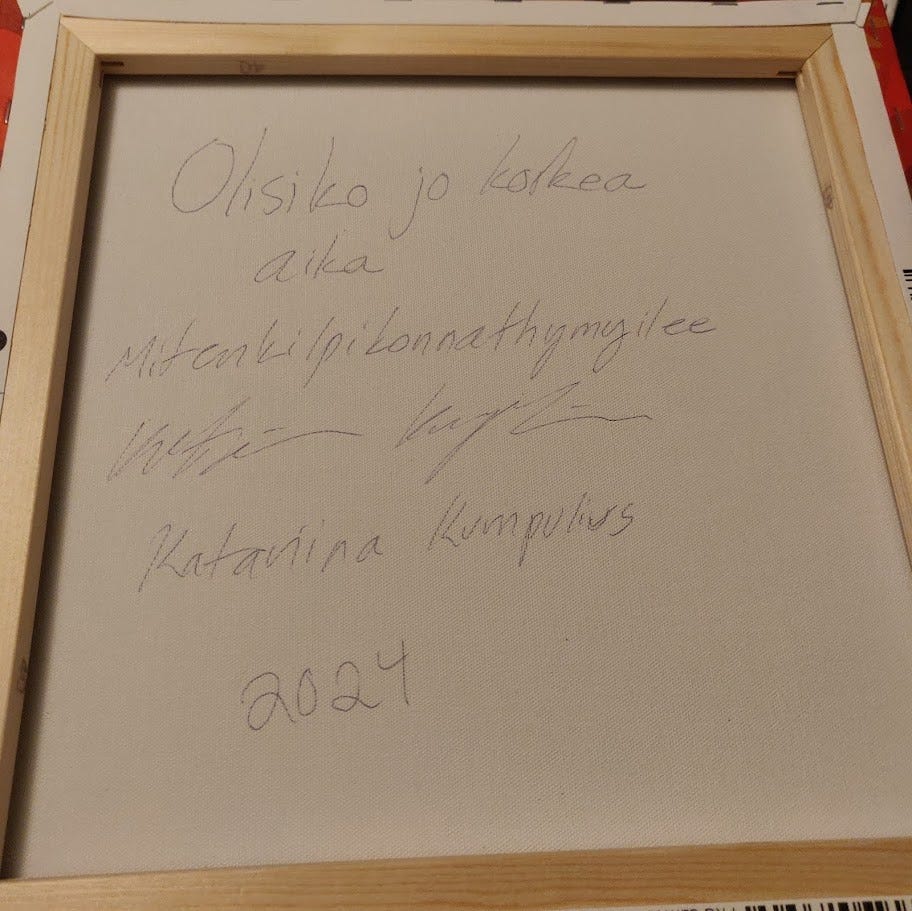 Olisiko jo korkea
aika
Mitenkilpikonnathymyilee
Katariina Kumpulius
2024